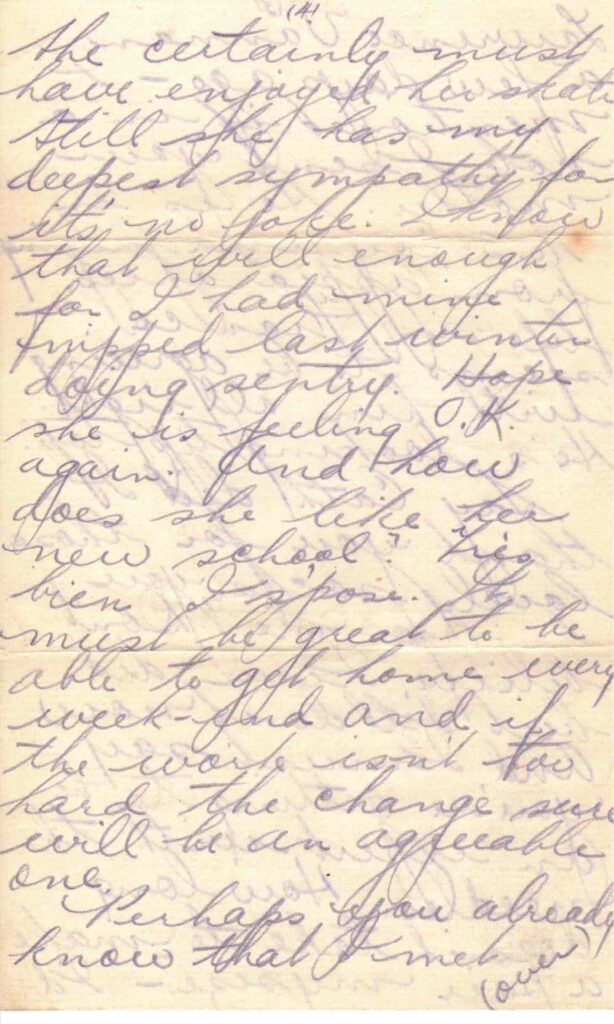 (4)
She certainly must
have enjoyed her skate
Still she has my
deepest sympathy for
it's no joke. I know
that well enough
for I had mine
nipped last winter
doing sentry. Hope
she is feeling O.K.
again. And how
does she like her
new school? Trés
bien I s'pose. It
must be great to be
able to get home every
week-end and if
the work isn't too
hard the change sure
will be an agreeable
one.
Perhaps you already
know that I met
(over)